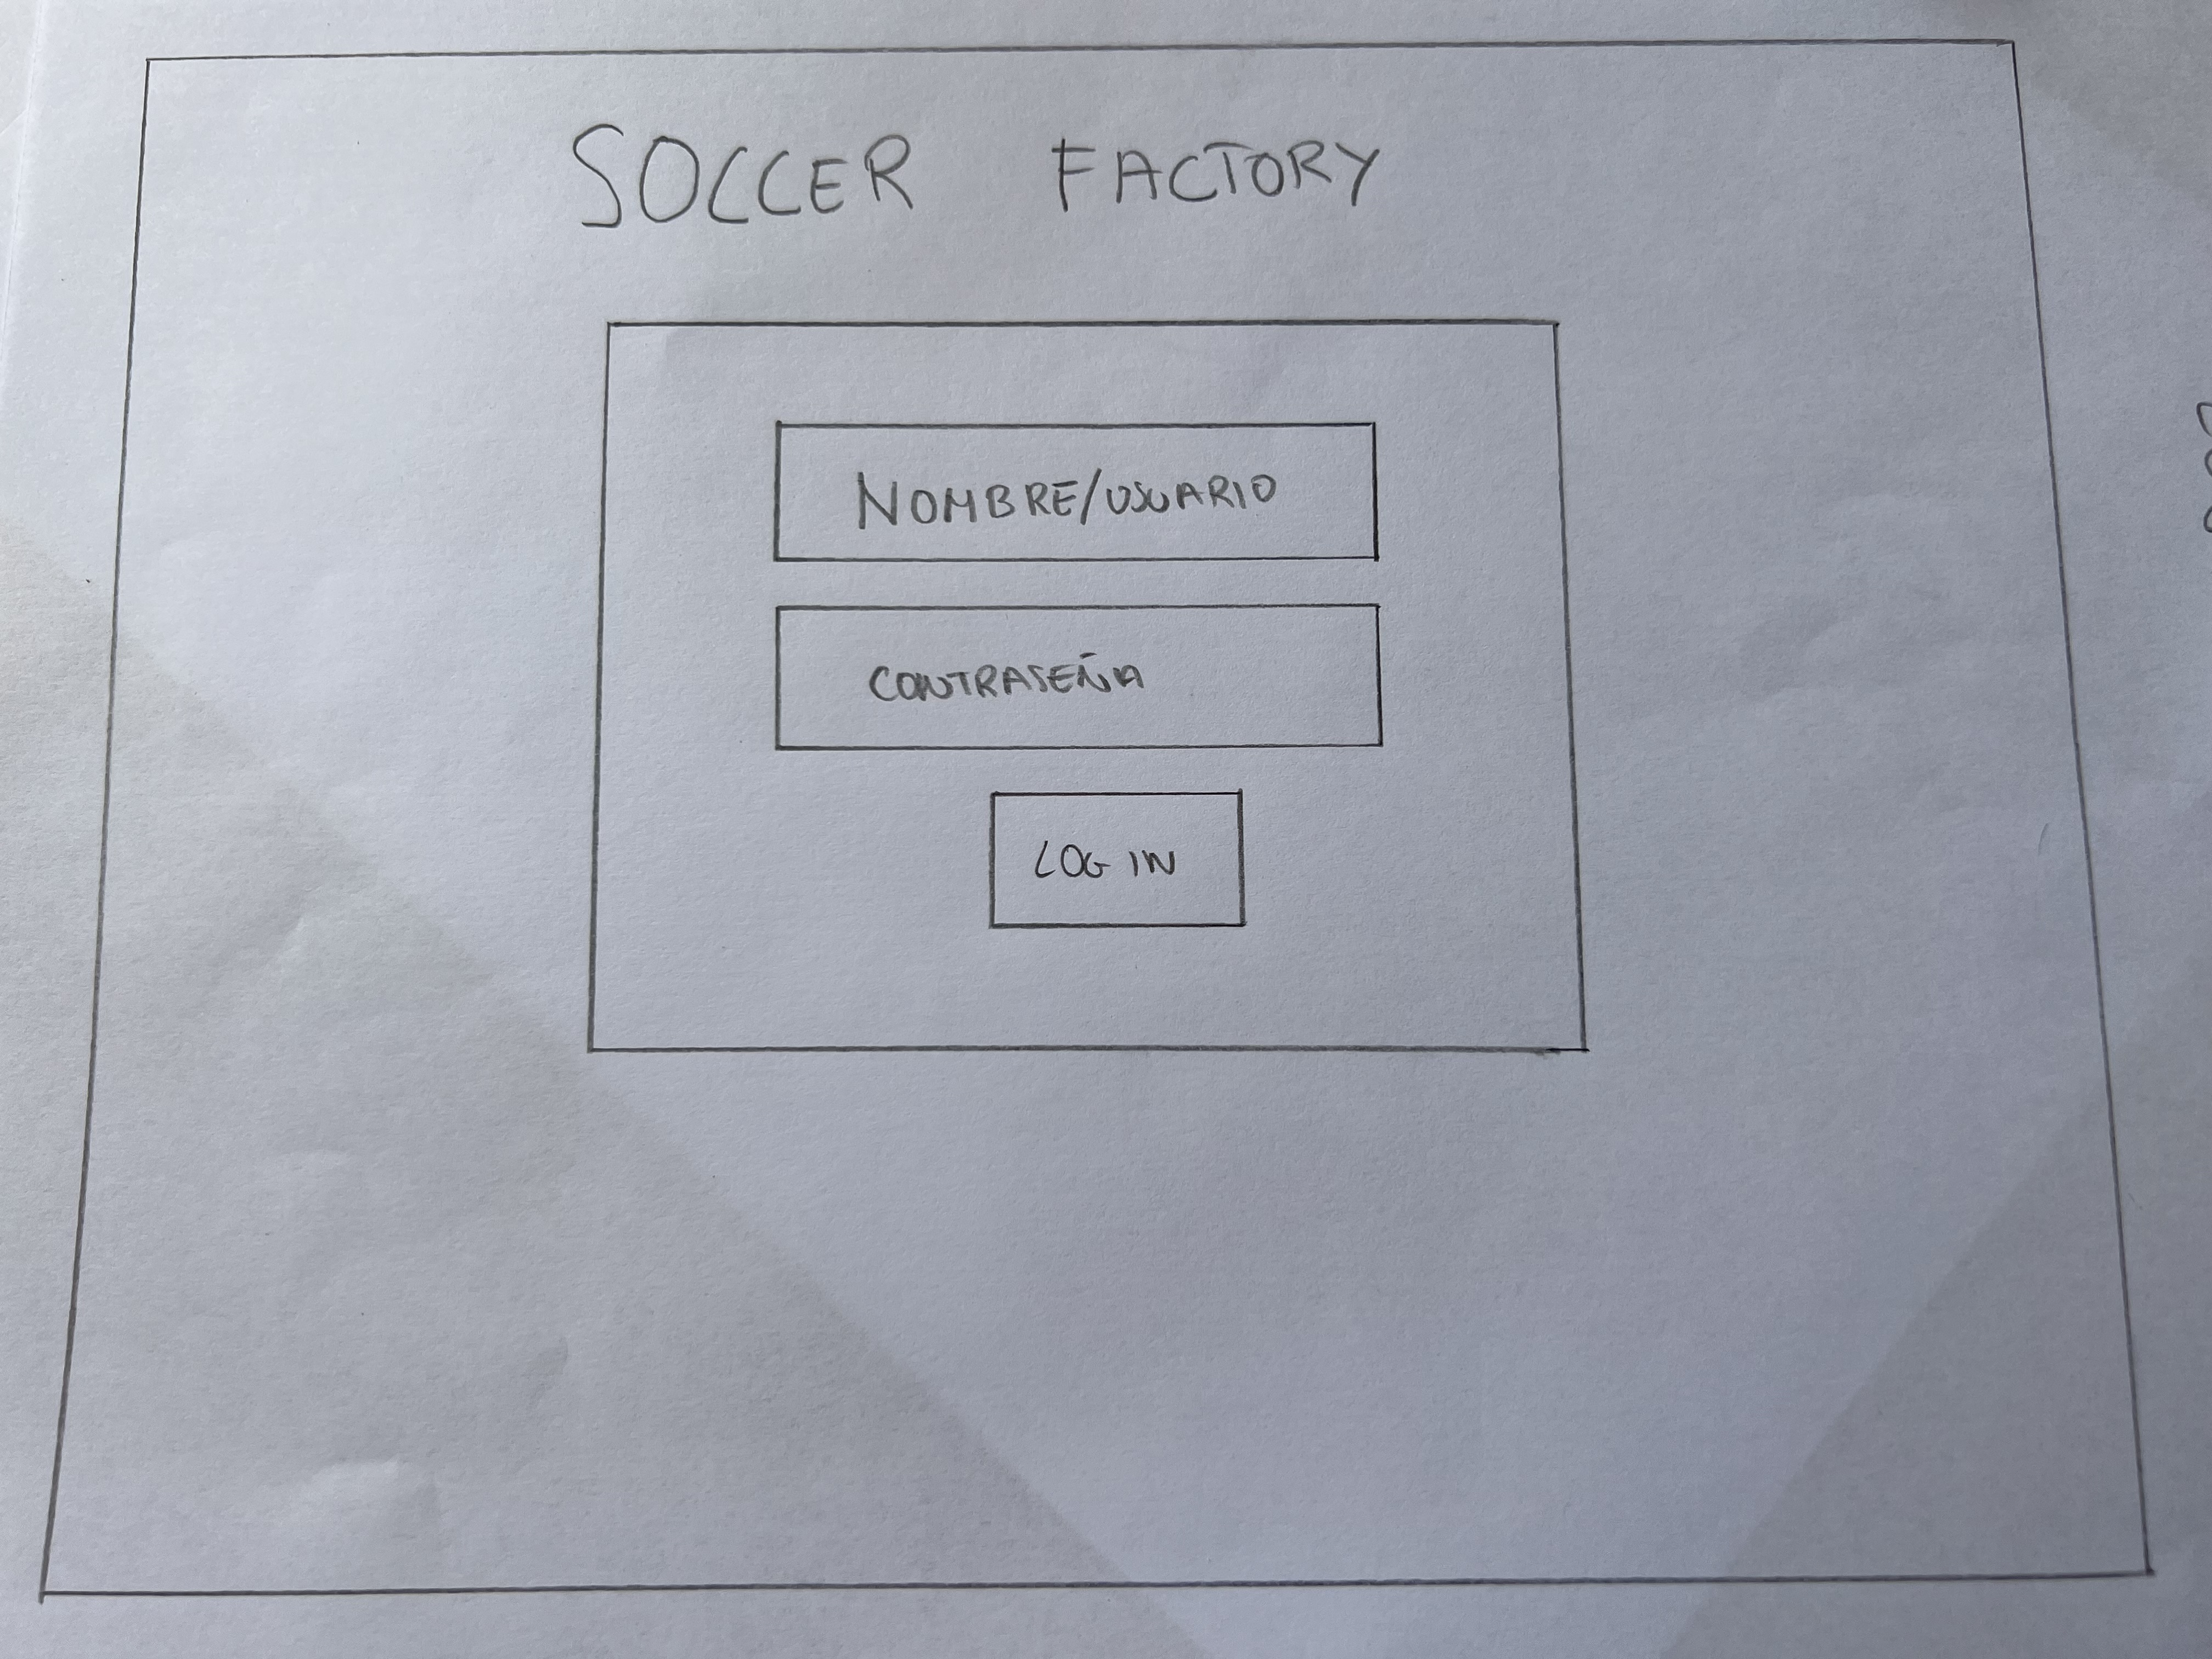 SOCCER FACTORY
NOMBRE/USUARIO
CONTRASEÑA
LOG IN